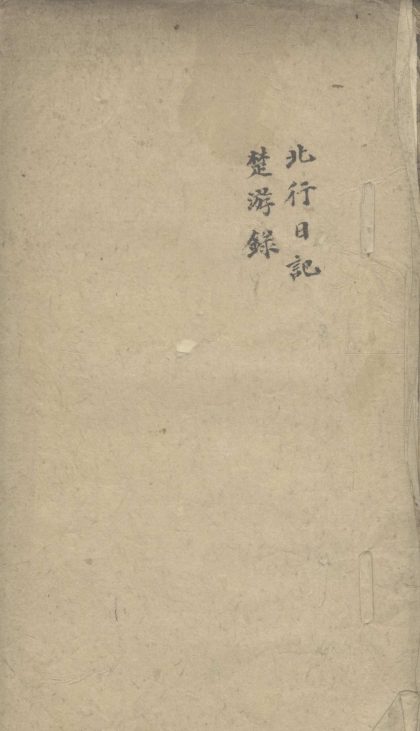 北行日記
楚游錄